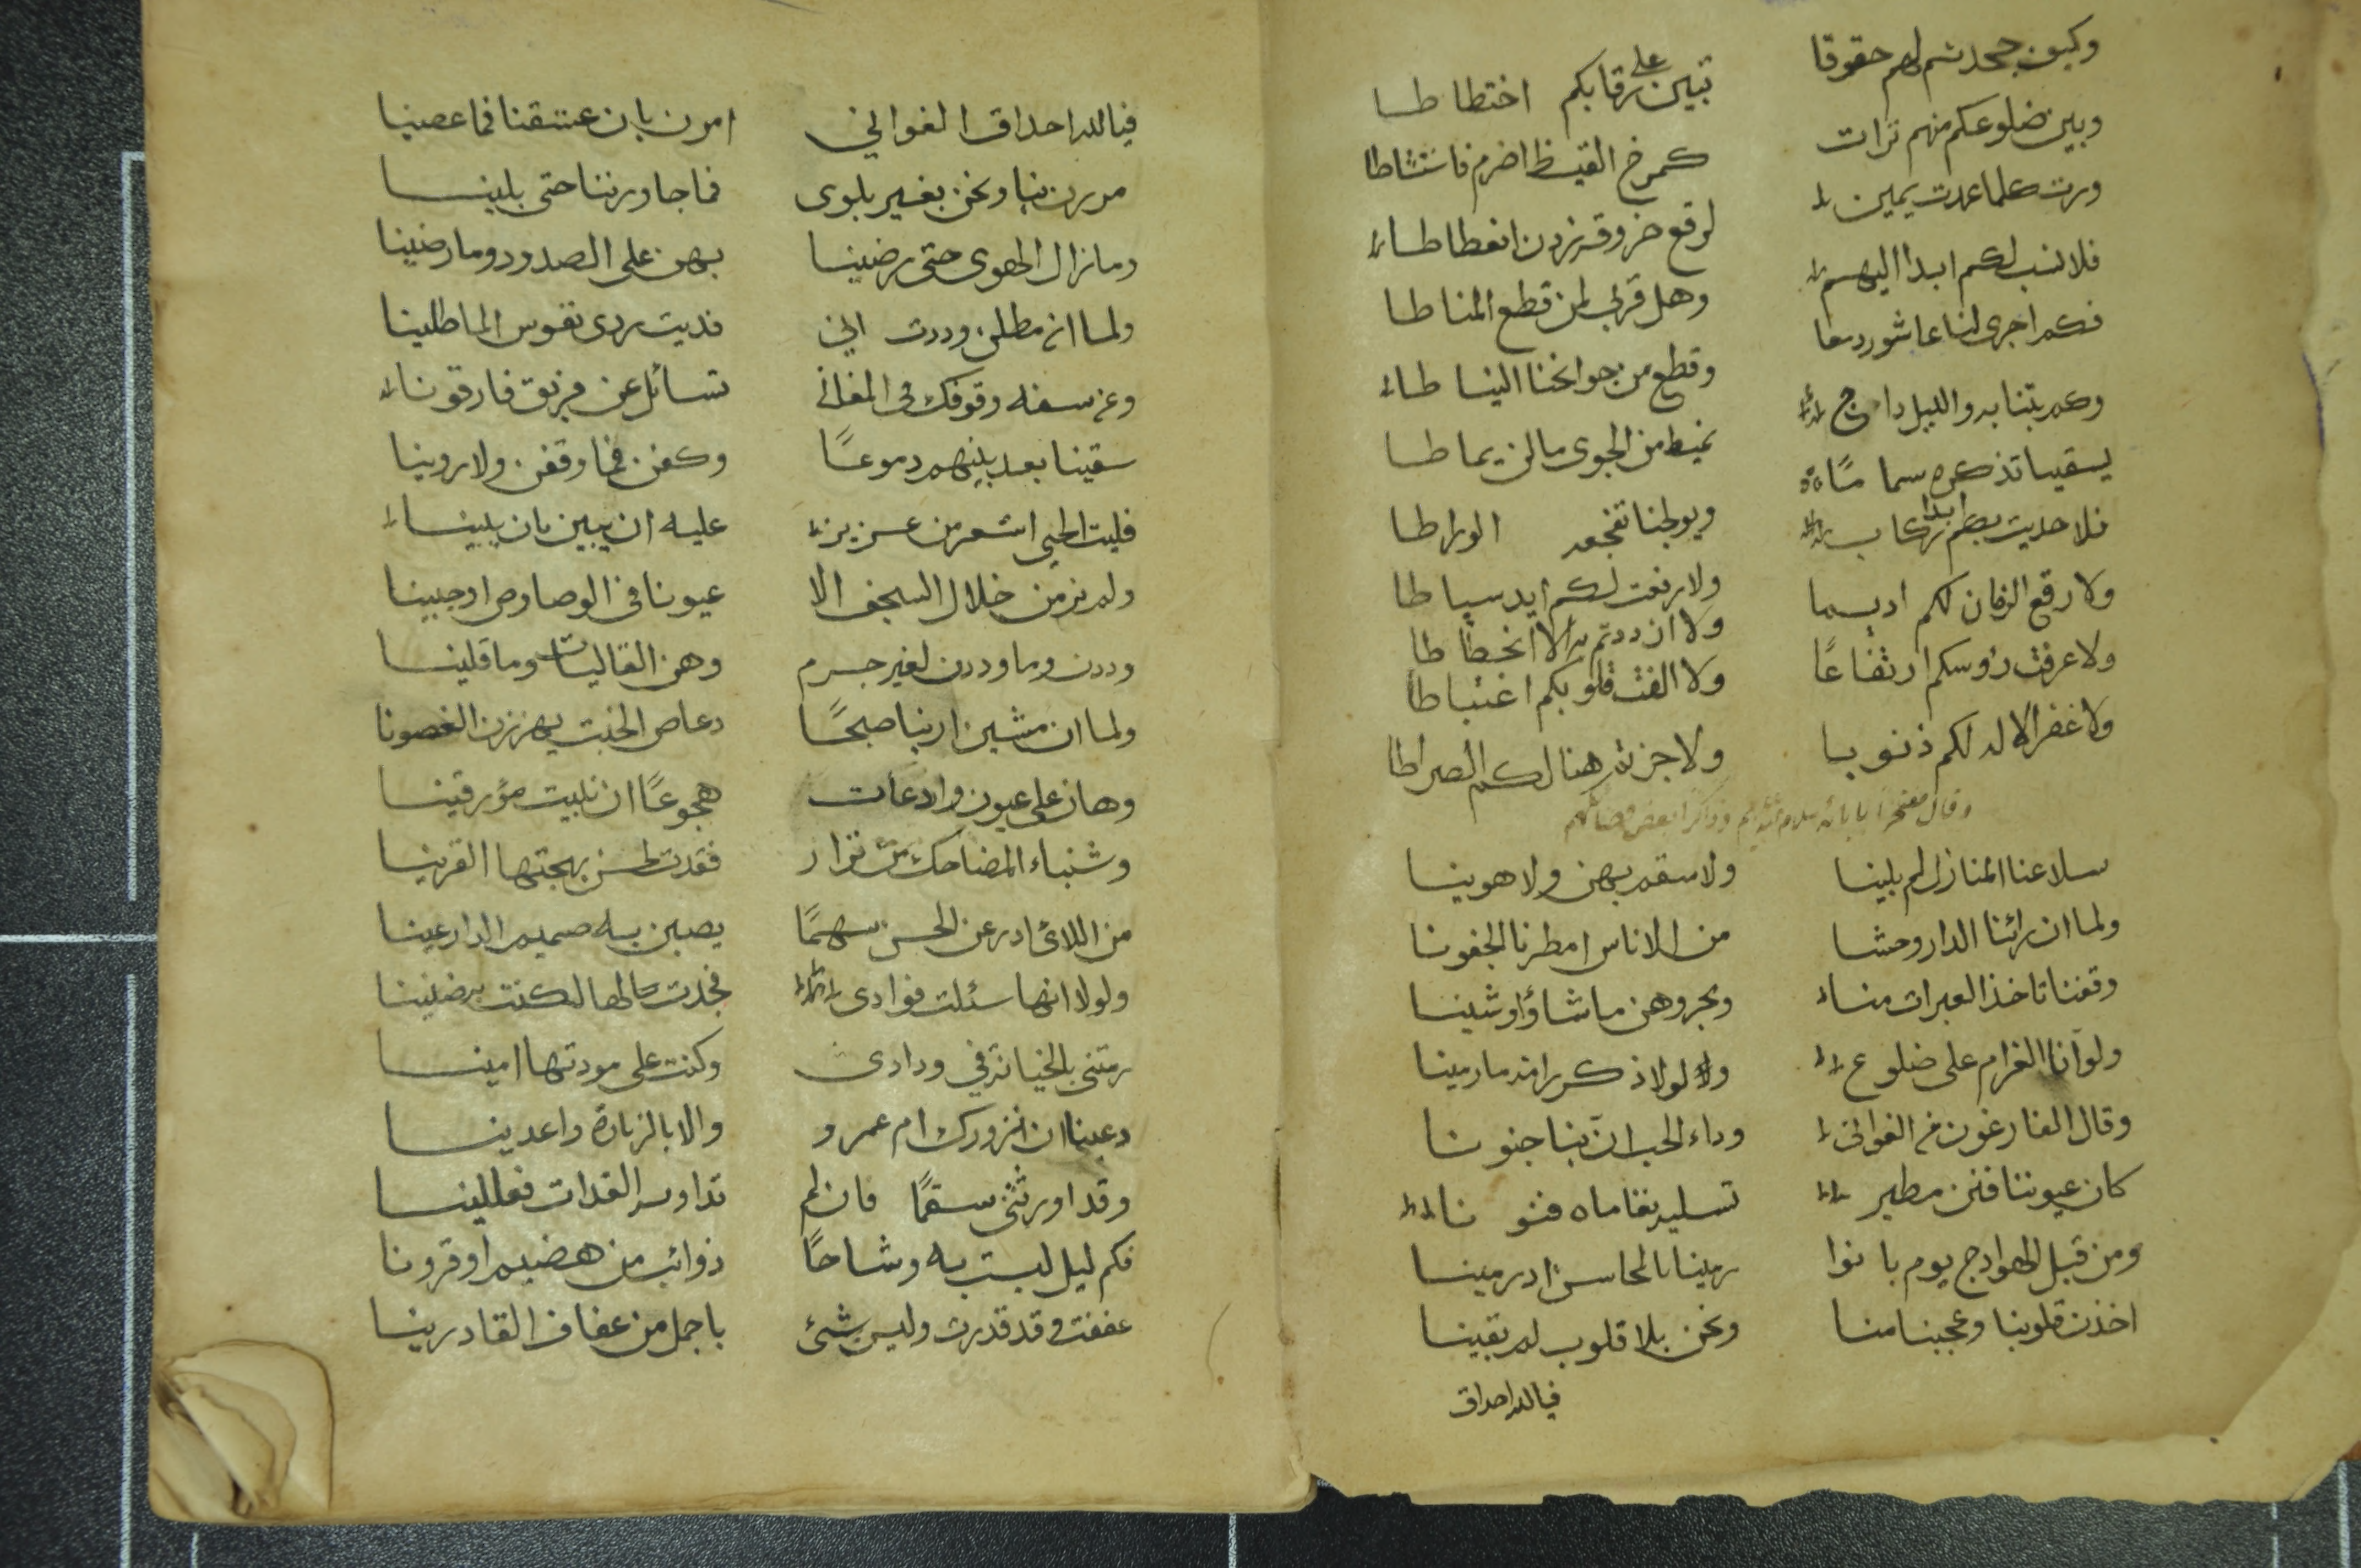 وكيف جحدتم لهم حقوقا تبين على رقابكم اختطاطا
وبين ضلوعكم منهم ترات كمرخ القيظ اضرم فاستشاطا
ورت كلما عدت يمين لوقع خروقه زدن انعطاطا
فلا نسب لكم ابدا اليهم وهل قربى لمن قطع المناطا
فكم اجرى لنا عاشور دمعا وقطع من جوانحنا النياطا
وكم بتنا به والليل داج نميط من الجوى ما لن يماطا
يسقينا تذكره سماما ويولجنا تفجعه الوراطا
فلا حديت بكم ابدا ركاب ولا رفعت لكم ايد سياطا
ولا رقع الزمان لكم اديما ولا ازددتم به الا انحطاطا
ولا عرفت رؤسكم ارتفاعًا ولا الفت قلوبكم اغتباطا
ولا غفر الاله لكم ذنوبا ولا جزتم هنالكم الصراطا
وقال مفتخرا بابائه سلام الله عليهم وذاكرا بعض
سلا عنا المنازل لم بلينا ولا سقم بهن ولا هوينا
ولما ان رأتنا الدار وحشا من الاناس امطرنا الجفونا
وقفنا تاخذ العبرات منا وبحر وهن ما شاؤا وشينا
ولو انا الغرام على ضلوع ولولا ذكر رامة ما رمينا
وقال الفارغون من الغوانى وداء الحب ان بنا جنونا
كان عيوننا فنن مطير تسليه نغاماه فنونا
ومن قبل الهوادج يوم بانوا رمينا بالمحاسن اذ رمينا
اخذن قلوبنا وعجبنا منا ونحن بلا قلوب لم بقينا
فيالله احداق
فيالله احداق الغواني امرن بان عشقنا فما عصينا
مررن بنا ونحن بغير بلوى فما جاوزننا حتى بلينا
وما زال الهوى حتى رضينا بهن على الصدود وما رضينا
ولما ان مطلن وددت اني فديت بردى نفوس الماطلينا
ومن سفه وقوفك في المغانى تسائل عن فريق فارقونا
سقينا بعد بينهم دموعًا وكفن فما وقفن ولا روينا
فليت الحي اشعر من عزيز عليه ان يبين بان يبينا
ولم نر من خلال السجف الا عيونا في الوصاوص او جبينا
وددن وما وددن لغير جرم وهن القاليات وما قلينا
ولما ان مشين ارينا صبحًا دعاص الخبت يهززن الغصونا
وهان على عيون وادعات هجوعًا ان نبيت مؤرقينا
وشنباء المضاحك من نزار فقدت لحسن بهجتها القرينا
من اللائى ادرعن الحسن سهمًا يصبن به صميم الدارعينا
ولولا انها سئلت فوادى فجدت به لها لكنت بها ضنينا
رمتنى بالخيانة في ودادى وكنت على مودتها امينا
دعينا ان نزورك ام عمرو والا بالزيارة واعدينا
وقد اورثتني سقمًا فان لم تداويه الغدات فعللينا
فكم ليل لبست به وشاحًا ذوائب من هضيم او قرونا
عففت وقد قدرت وليس شئ باجمل من عفاف القادرينا